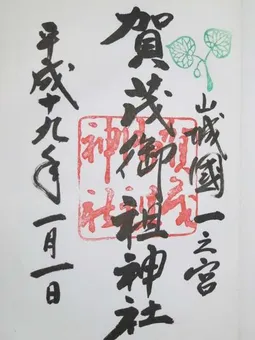 山城國一之宮
賀茂御祖神社
平成十九年一月一日
賀茂御祖神社